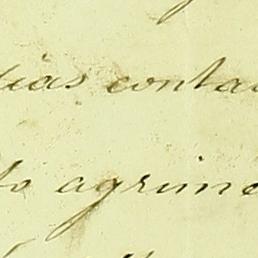 dias conta
to agrime